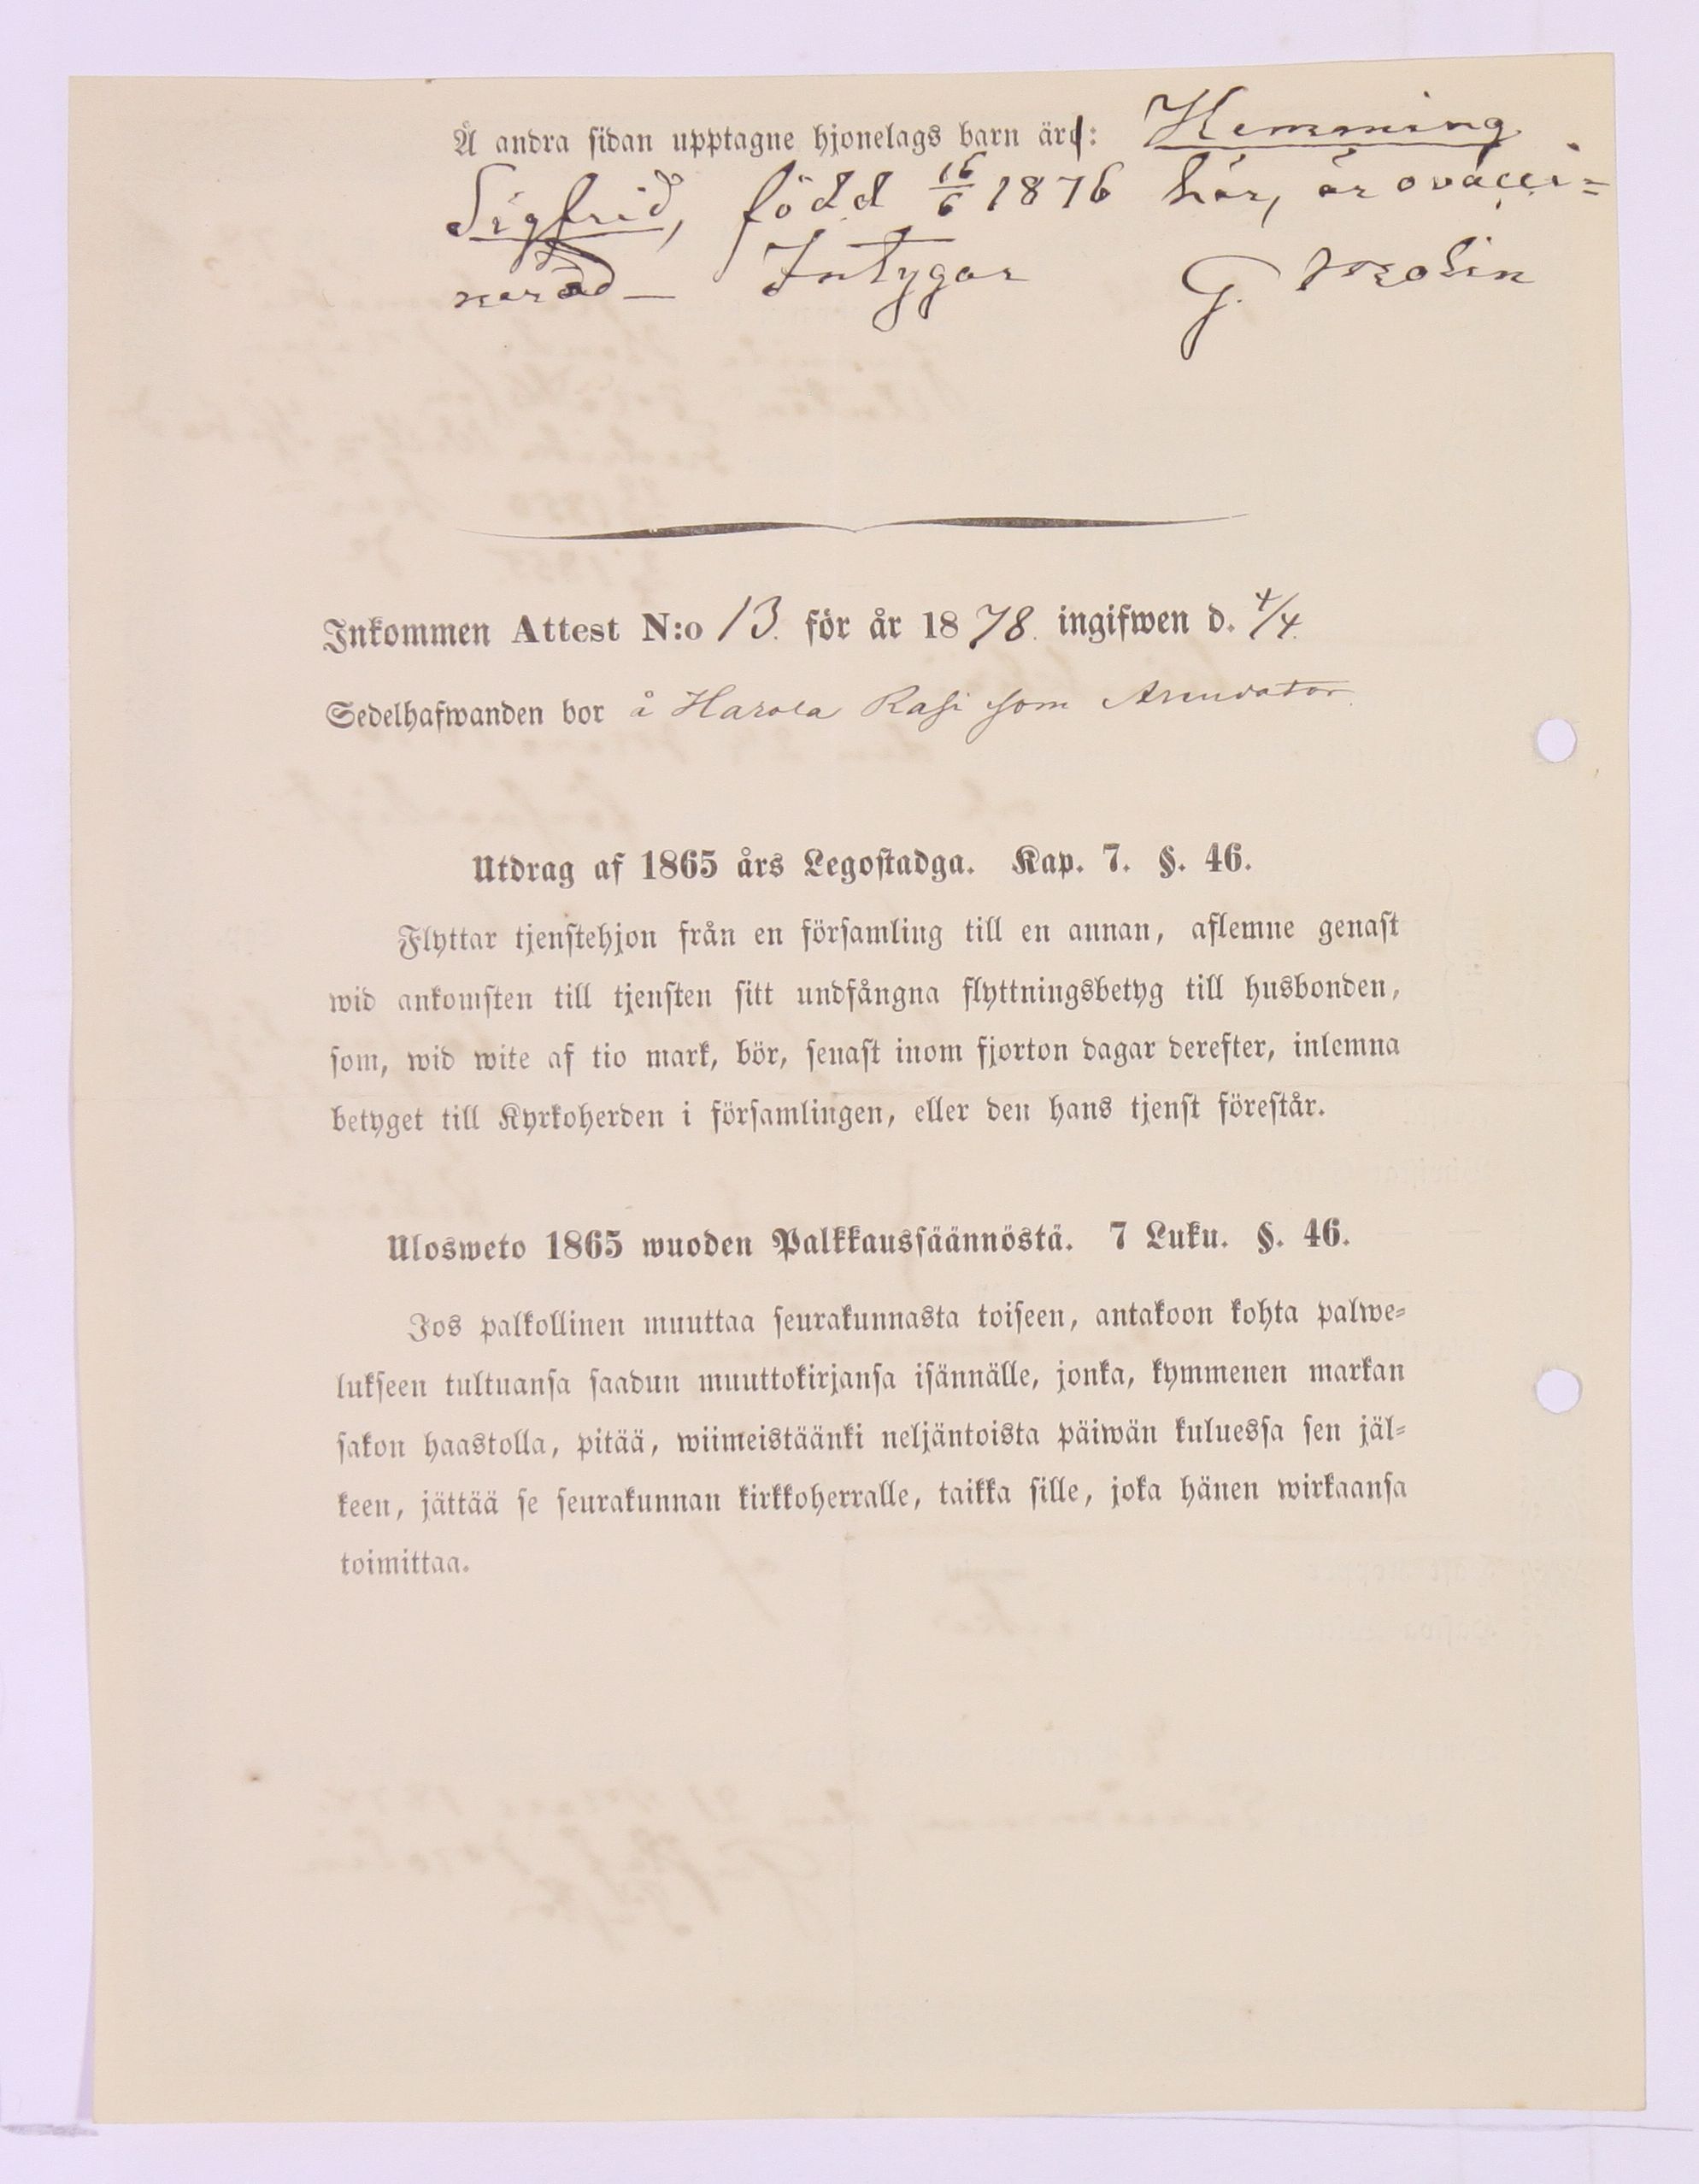 Å andra sidan upptagne hjonelags barn är: Hemming
Sigfrid, född 16/6 1876 här, är ovacci=
nerad — Intygar G. Molin
Inkommen Attest N:o 13. för år 1878. ingifwen d. 4/4.
Sedelhafwanden bor å Harola Rasi som Arendator.
Utdrag af 1865 års Legostadga. Kap. 7. §. 46.
Flyttar tjenstehjon från en församling till en annan, aflemne genast
wid ankomsten till tjensten sitt undfångna flyttningsbetyg till husbonden,
som, wid wite af tio mark, bör, senast inom fjorton dagar derefter, inlemna
betyget till Kyrkoherden i församlingen, eller den hans tjenst förestår.
Ulosweto 1865 wuoden Palkkaussäännöstä. 7 Luku. §. 46.
Jos palkollinen muuttaa seurakunnasta toiseen, antakoon kohta palwe=
lukseen tultuansa saadun muuttokirjansa isännälle, jonka, kymmenen markan
sakon haastolla, pitää, wiimeistäänki neljäntoista päiwän kuluessa sen jäl=
keen, jättää se seurakunnan kirkkoherralle, taikka sille, joka hänen wirkaansa
toimittaa.